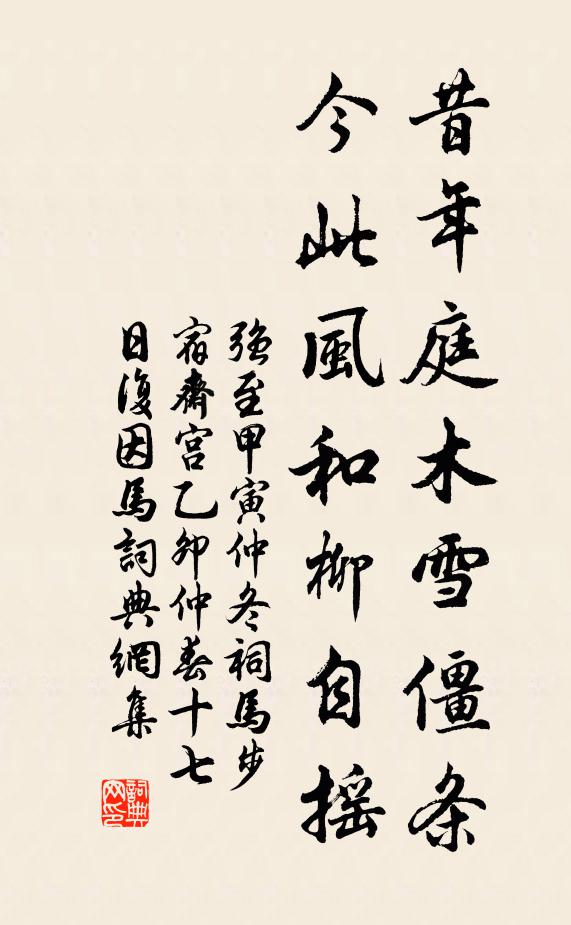 昔年庭木雪僵条
今此風和柳自摇
強至甲寅仲冬祠馬步
宿齋宮乙卯仲春十七
日復因馬詞典網集
詞典
网印